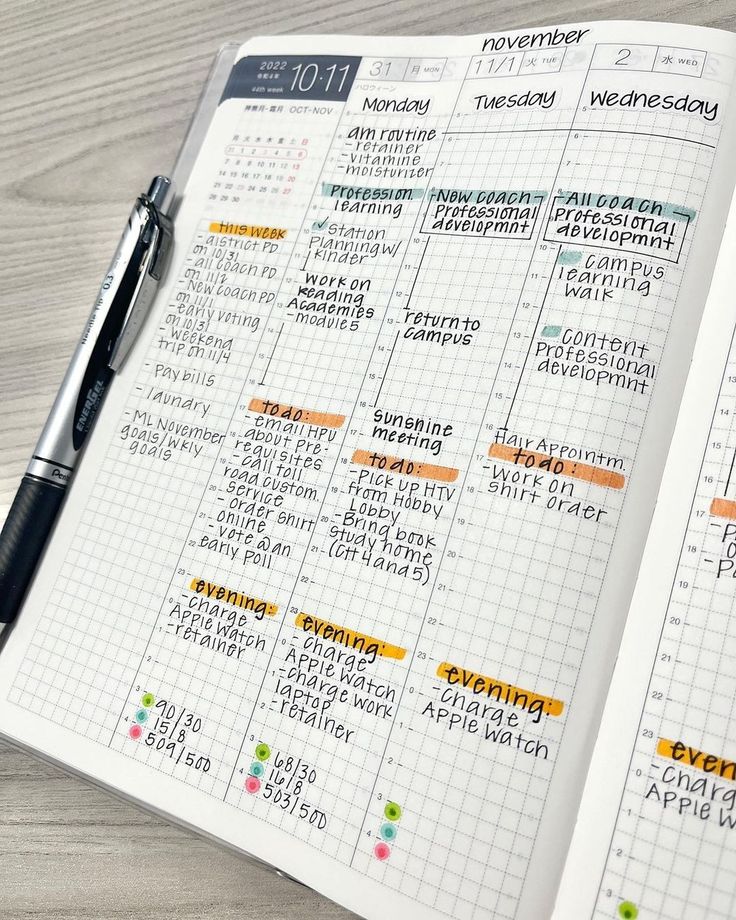 november
2022
令和4年
44th week
10·11
神無月・霜月 OCT-NOV
月 火 水 木 金 土 日
31 1 2 3 4 5 6
7 8 9 10 11 12 13
14 15 16 17 18 19 20
21 22 23 24 25 26 27
28 29 30
this week
- district PD
on 10/31
- all coach PD
on 11/2
- New coach PD
on 11/1
- early voting
on 10/31
- weekend
trip on 11/4
- Pay bills
- laundry
- ML November
goals/wkly
goals
31 月 MON
ハロウィーン
Monday
am routine
- retainer
- vitamine
- moisturizer
Profession
learning
✓ Station
Planning w/
kinder
Work on
Reading
Academies
- module 5
to do:
- email HPU
about pre-
requisites
- call toll
road custom.
service
- order shirt
online
- vote @ an
early poll
evening:
- charge
Apple Watch
- retainer
90/30
15/8
509/500
11/1 火 TUE
Tuesday
New coach
Professional
development
return to
campus
sunshine
meeting
to do:
- Pick up HTV
from Hobby
Lobby
- Bring book
study home
(Ch 4 and 5)
evening:
- charge
Apple Watch
- charge work
laptop
- retainer
68/30
16/8
503/500
2 水 WED
Wednesday
All coach
Professional
developmnt
campus
learning
walk
content
Professional
developmnt
Hair Appointm.
to do:
- Work on
shirt order
evening:
- charge
Apple Watch
evenin
- charg
Apple W
EnerGel
Needle Tip 0.3